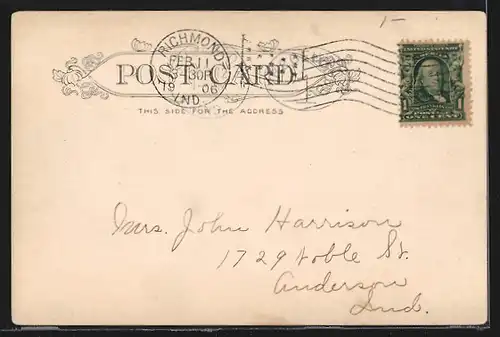 RICHMOND
FEB 11
30P
1906
IND.
POST CARD
THIS SIDE FOR THE ADDRESS
1
1
ONE CENT
Mrs. John Harrison
1729 Noble St.
Anderson
Ind.